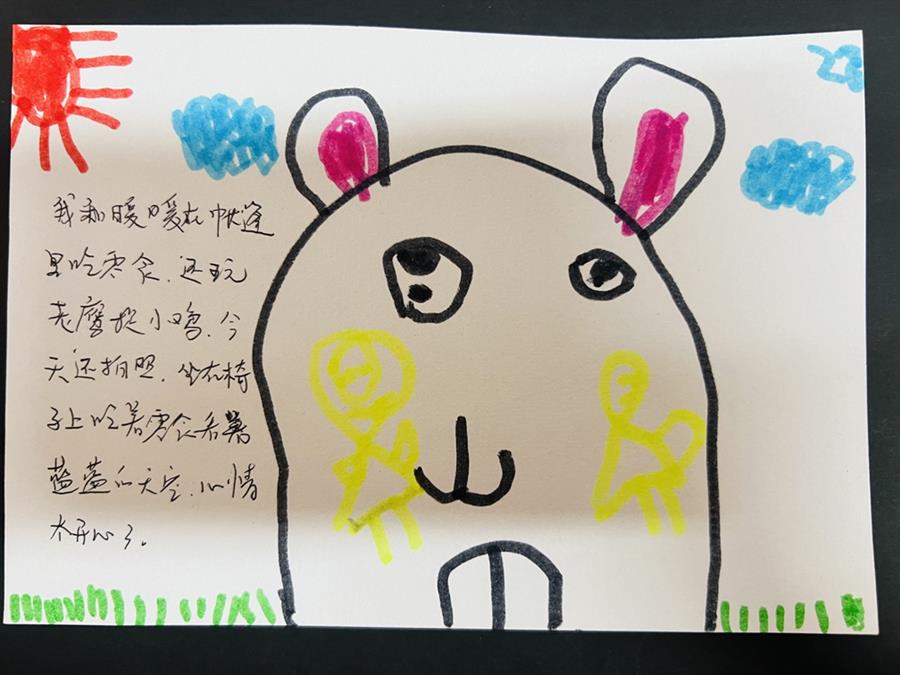 我和暖暖在帐篷
里吃零食.还玩
老鹰捉小鸡.今
天还拍照.坐在椅
子上吃着零食看着
蓝蓝的天空.心情
太开心了。